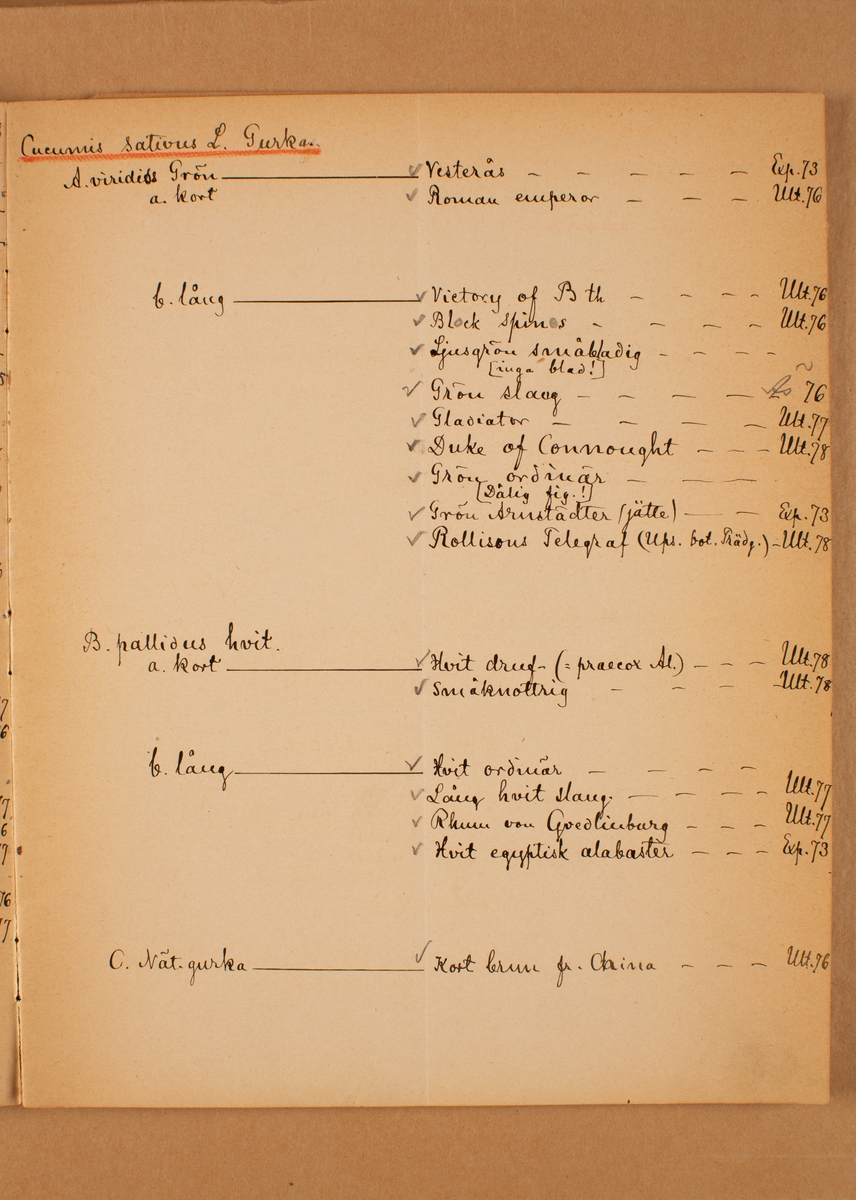 Cucumis sativus L. Gurka.
A. viridis Grön Vesterås - - - - - Exp. 73
a. kort Roman emperor - - - Utt. 76
b. lång Victory of Bth - - - - Utt. 76
Block spines - - - - Utt. 76
Ljusgrön småbladig - - - -
[inga blad!]
Grön slang - - - - 76
Gladiator - - - - Utt. 77
Duke of Connought - - - Utt. 78
Grön ordinär - - -
[Dålig fig.!]
Grön Arnstädter (jätte) - - Exp. 73
Rollisons Telegraf (Ups. bot. Trädg.) - Utt. 78
B. pallidus hvit.
a. kort Hvit druf- (= praecox Al.) - - - Utt. 78
Småknottrig - - - - Utt. 78
b. lång Hvit ordinär - - - -
Lång hvit slang. - - - - Utt. 77
Rhum von Qvedlinburg - - - Utt. 77
Hvit egyptisk alabaster - - - Exp. 73
C. Nät-gurka Kort brun fr. China - - - Utt. 76